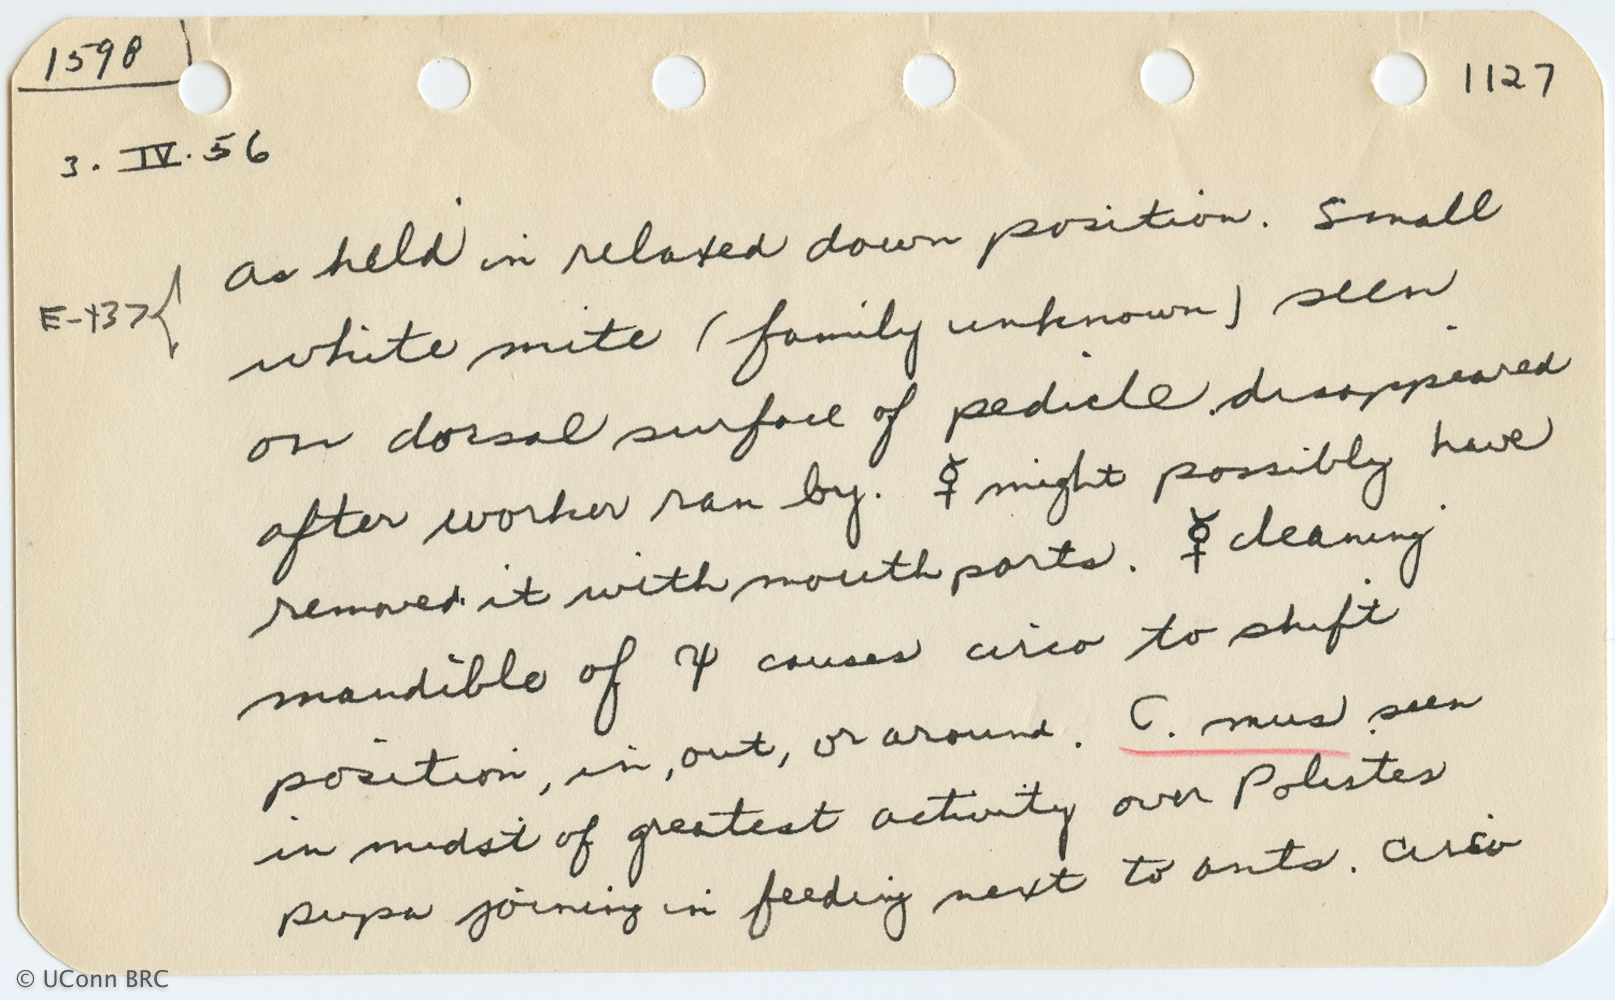 1598
1127
3. IV. 56
E-437 {
as held in relaxed down position. Small
white mite (family unknown) seen
on dorsal surface of pedicle. disappeared
after worker ran by. ☿ might possibly have
removed it with mouth parts. ☿ cleaning
mandible of ♃ causes circo to shift
position, in, out, or around. C. mus seen
in midst of greatest activity over Polistes
pupa joining in feeding next to ants. Circo
© UConn BRC